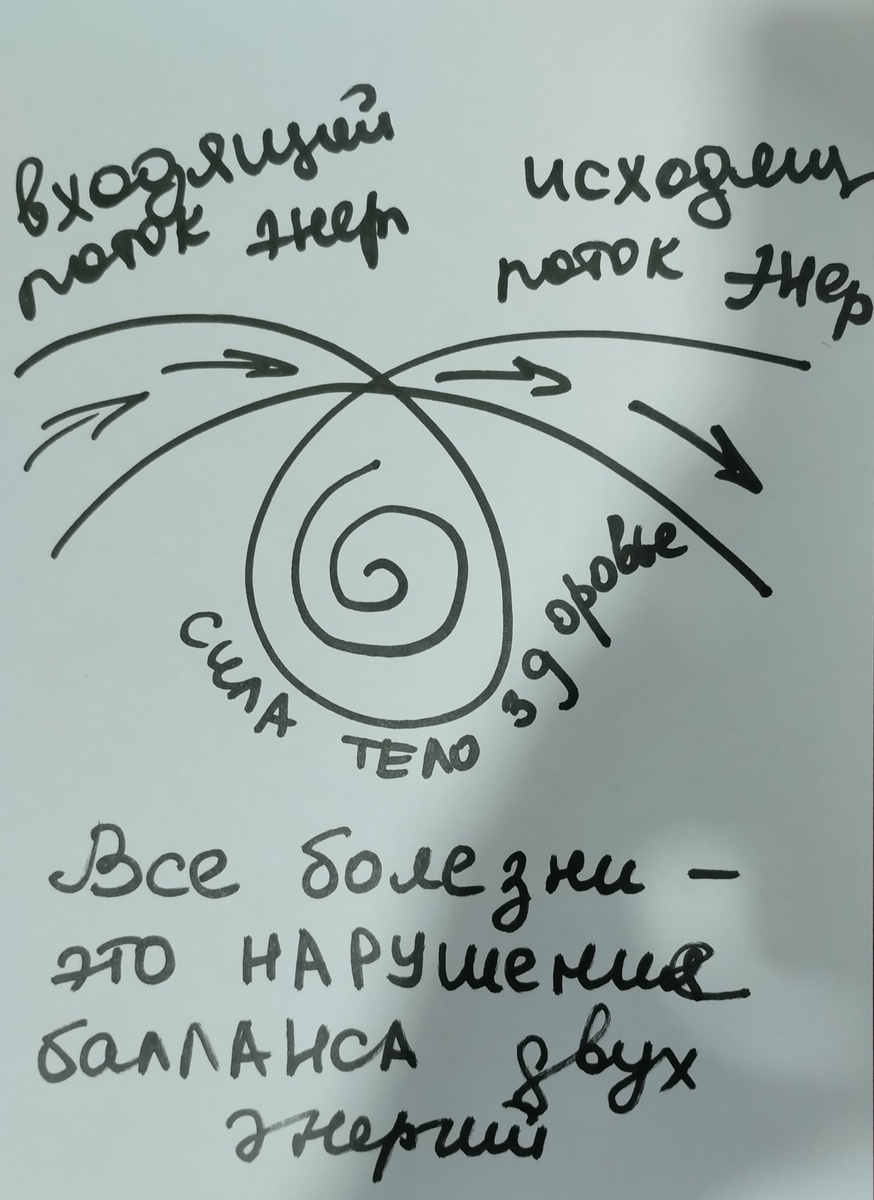 входящий
поток энерг
исходящ
поток энер
СИЛА
ТЕЛО
здоровье
Все болезни –
это НАРУшения
балЛАНСА двух
энергий